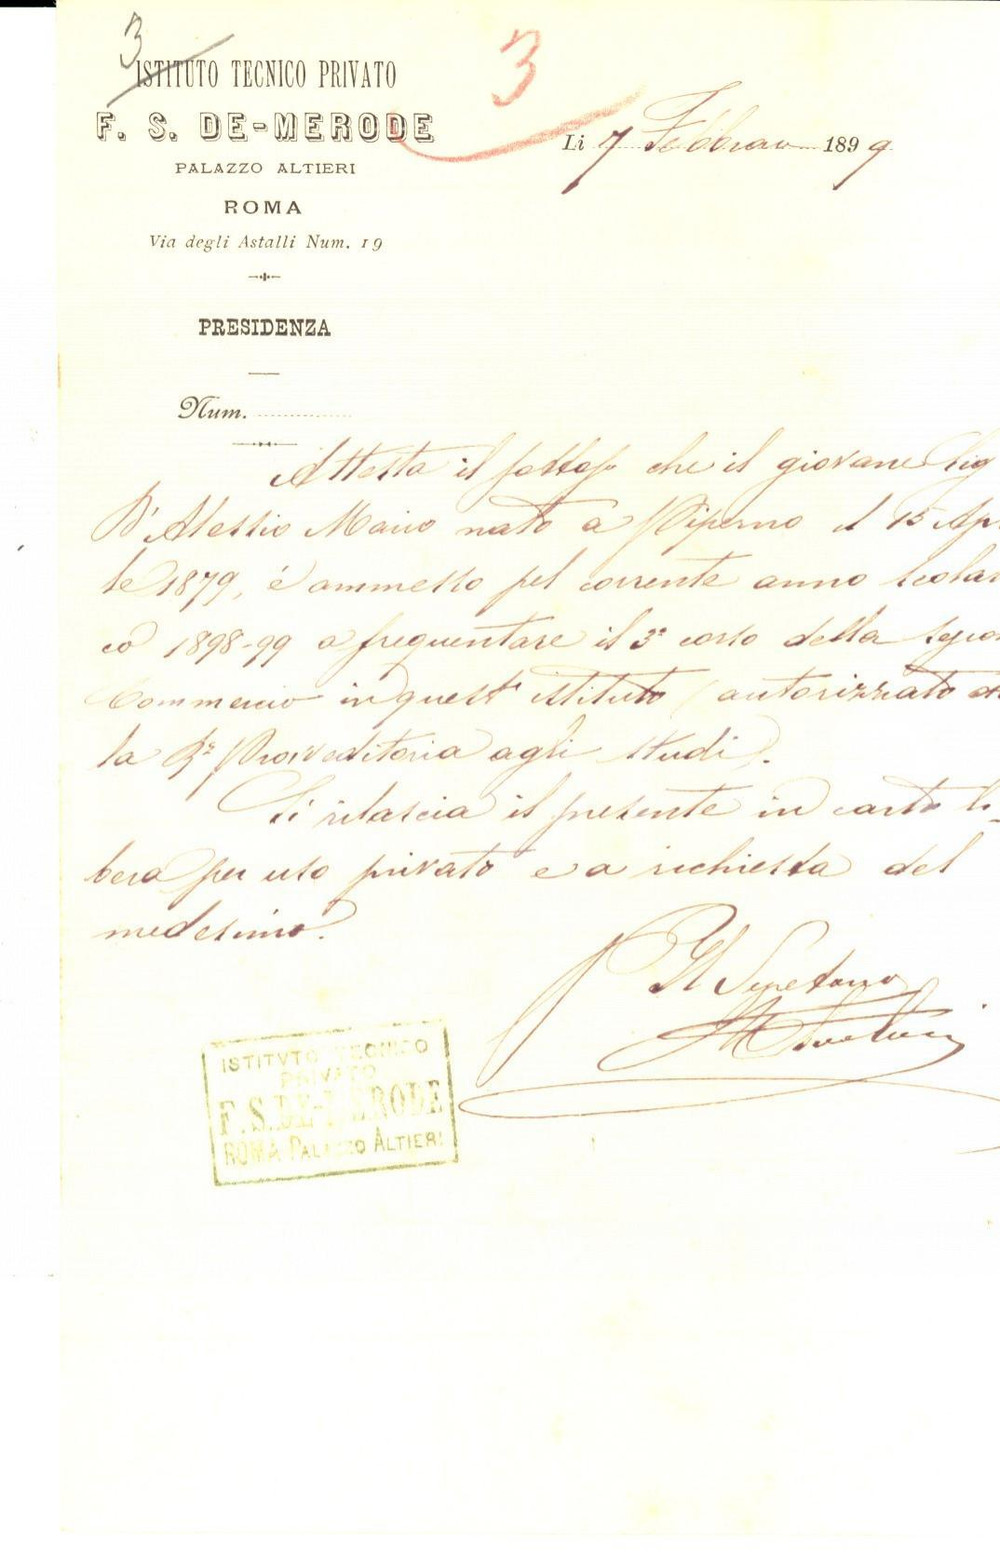 3
3
ISTITUTO TECNICO PRIVATO
F. S. DE-MERODE
PALAZZO ALTIERI
ROMA
Via degli Astalli Num. 19
Li 7 Febbraio 1899
PRESIDENZA
Num.
Attesta il sottosꝉ che il giovane Sig
D'Alessio Mario nato a Piperno il 15 Apri
le 1879, è ammesso pel corrente anno scolas
co 1898-99 a frequentare il 3° corso della sezio
Commercio in quest' istituto (autorizzato dal
la Rª Provveditoria agli studi).
Si rilascia il presente in carta li-
bera per uso privato e a richiesta del
medesimo.
Il Segretario
ISTITVTO TECNICO
PRIVATO
F. S. DE-MERODE
ROMA PALAZZO ALTIERI